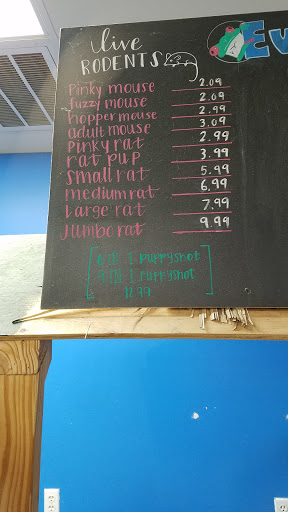 live
RODENTS
Ev
Pinky mouse 2.09
fuzzy mouse 2.09
hopper mouse 2.99
adult mouse 3.09
Pinky rat 2.99
rat pup 3.99
small rat 5.99
medium rat 6.99
Large rat 7.99
Jumbo rat 9.99
1 puppyshot
1 puppyshot
12.99